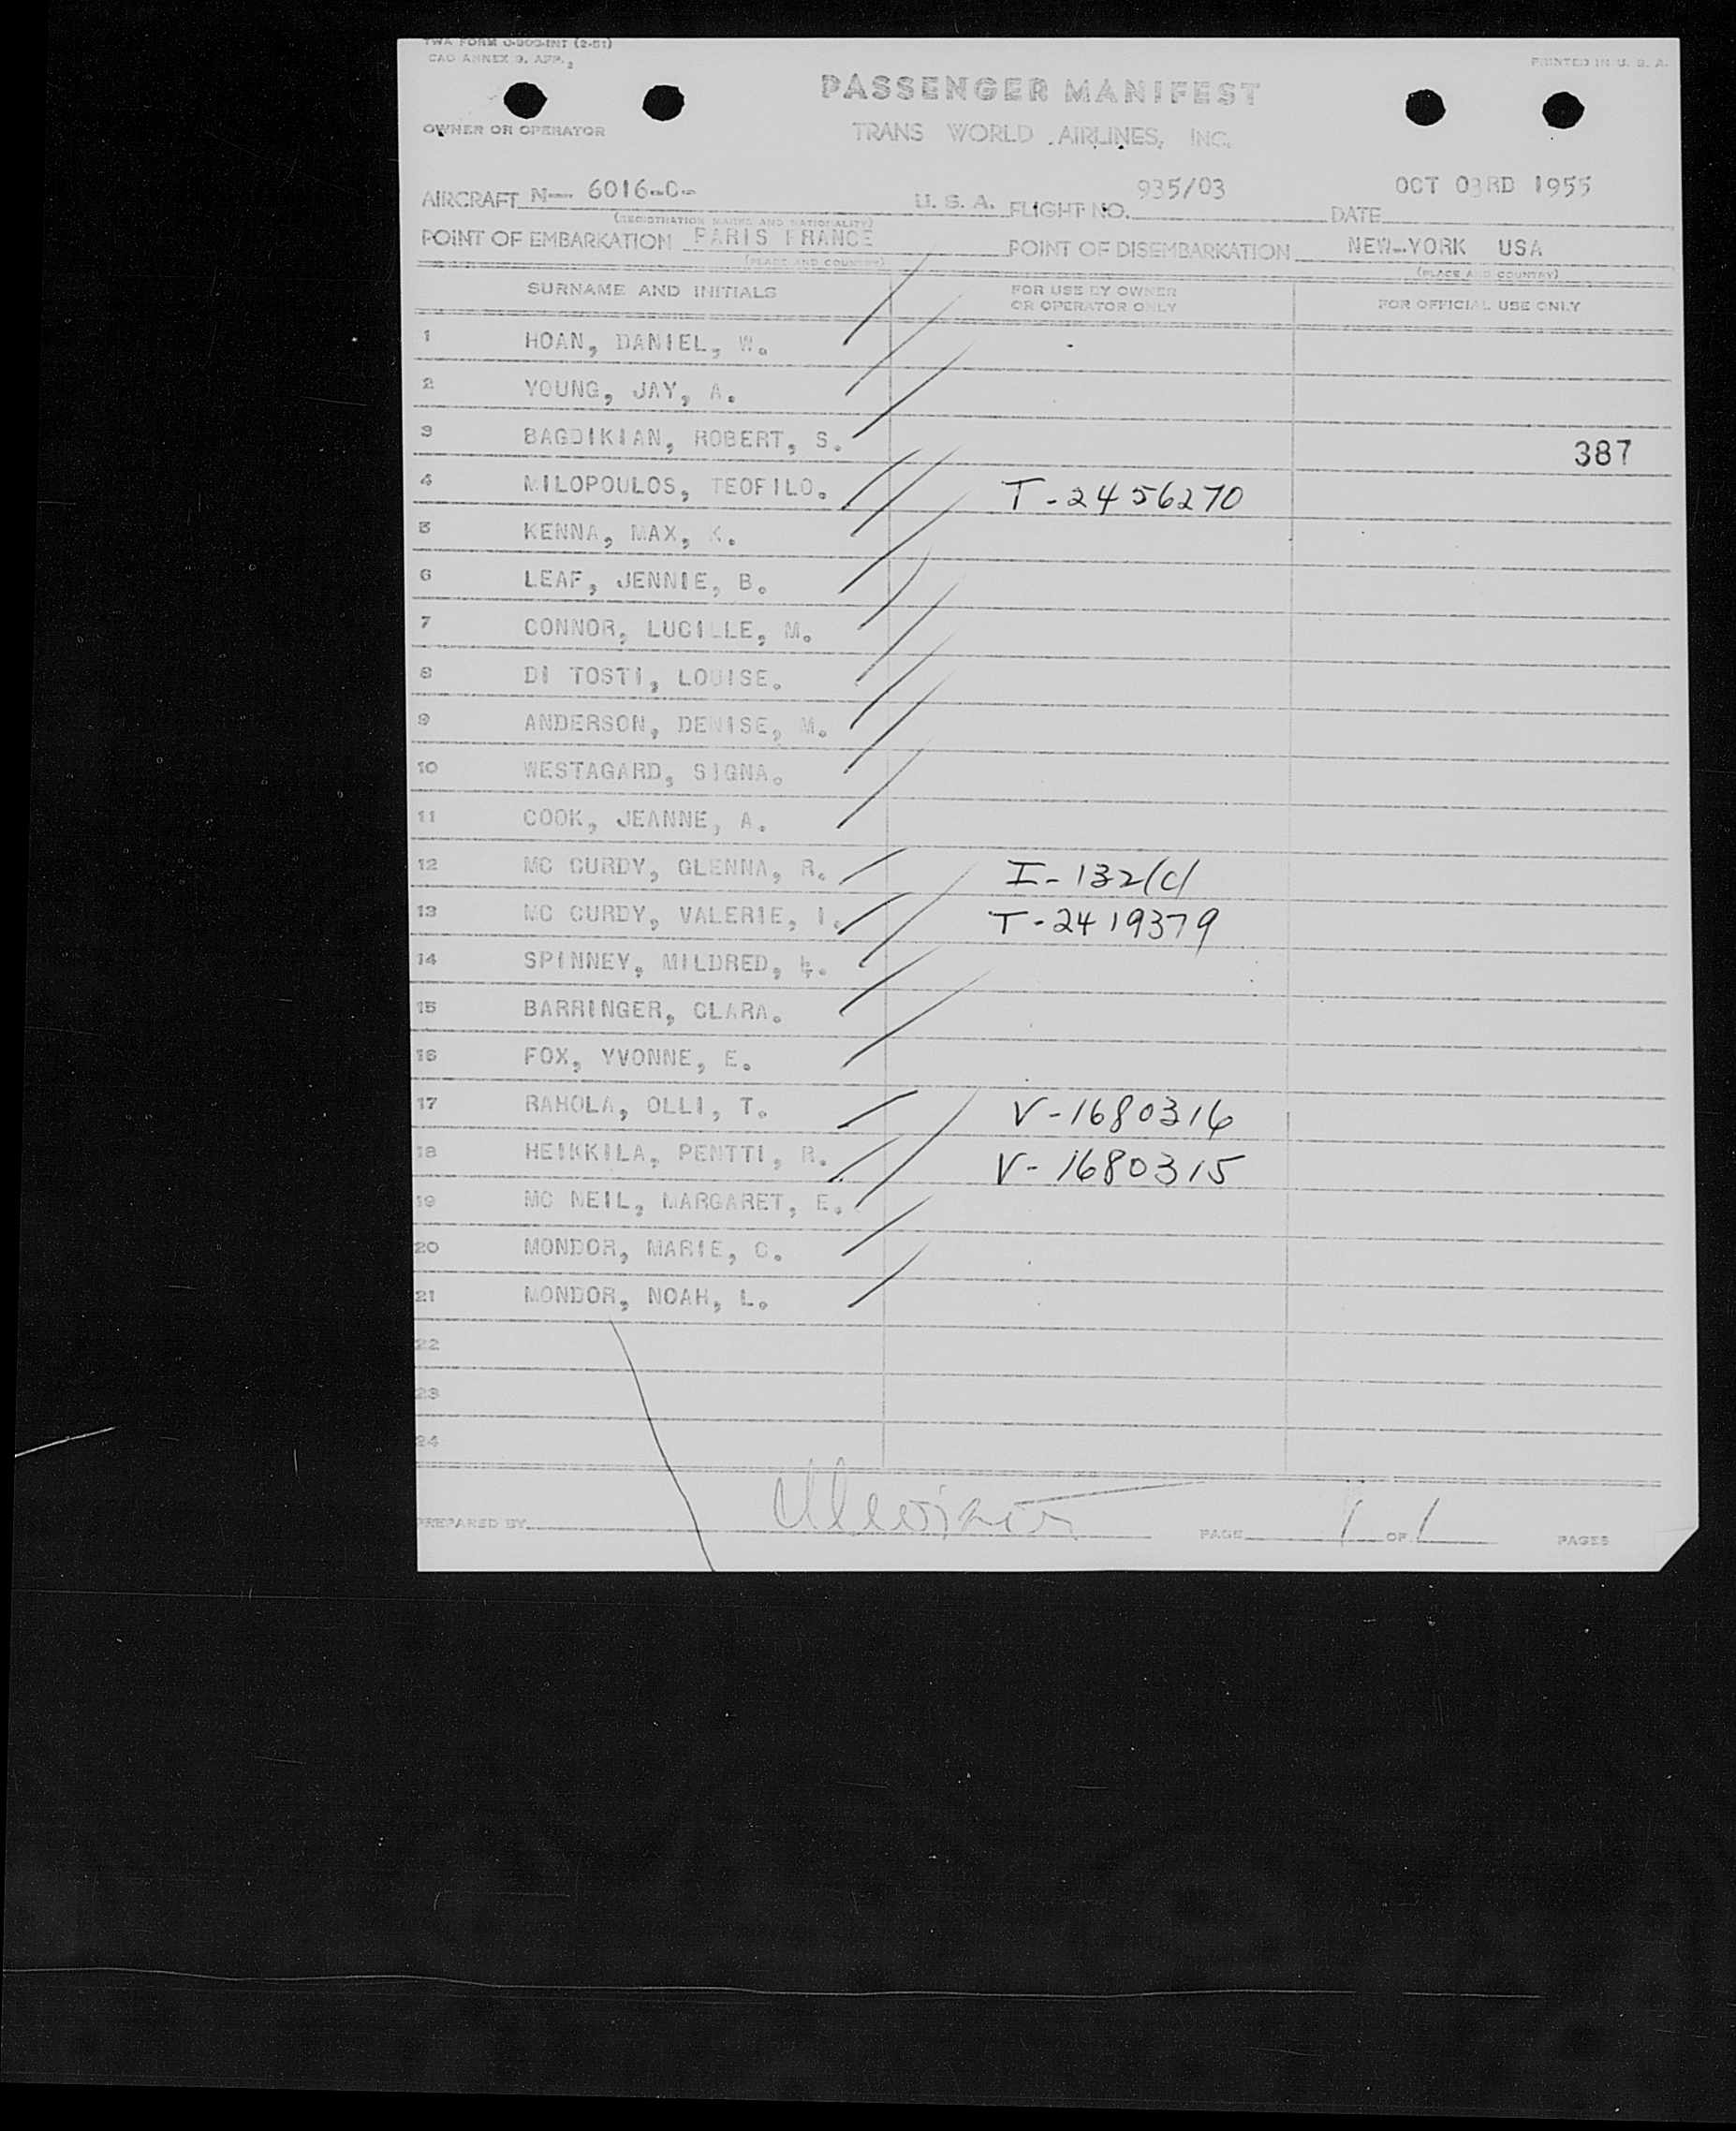 TWA FORM J-500-INT (2-51)
CAO ANNEX 9. APP. 2
PRINTED IN U. S. A.
PASSENGER MANIFEST
OWNER OR OPERATOR
TRANS WORLD AIRLINES, INC.
AIRCRAFT N-- 6016-C- U. S. A. FLIGHT NO. 935/03 DATE OCT 03RD 1955
(REGISTRATION MARKS AND NATIONALITY)
POINT OF EMBARKATION PARIS FRANCE POINT OF DISEMBARKATION NEW-YORK USA
(PLACE AND COUNTRY) (PLACE AND COUNTRY)
SURNAME AND INITIALS FOR USE BY OWNER OR OPERATOR ONLY FOR OFFICIAL USE ONLY
1 HOAN, DANIEL, W.
2 YOUNG, JAY, A.
3 BAGDIKIAN, ROBERT, S. 387
4 MILOPOULOS, TEOFILO. T-2456270
5 KENNA, MAX, K.
6 LEAF, JENNIE, B.
7 CONNOR, LUCILLE, M.
8 DI TOSTI, LOUISE.
9 ANDERSON, DENISE, M.
10 WESTAGARD, SIGNA.
11 COOK, JEANNE, A.
12 MC CURDY, GLENNA, R. I-132(c)
13 MC CURDY, VALERIE, I. T-2419379
14 SPINNEY, MILDRED,
15 BARRINGER, CLARA.
16 FOX, YVONNE, E.
17 RAHOLA, OLLI, T. V-1680316
18 HEIKKILA, PENTTI, R. V-1680315
19 MC NEIL, MARGARET, E.
20 MONDOR, MARIE, C.
21 MONDOR, NOAH, L.
22
23
24
PREPARED BY PAGE 1 OF 1 PAGES